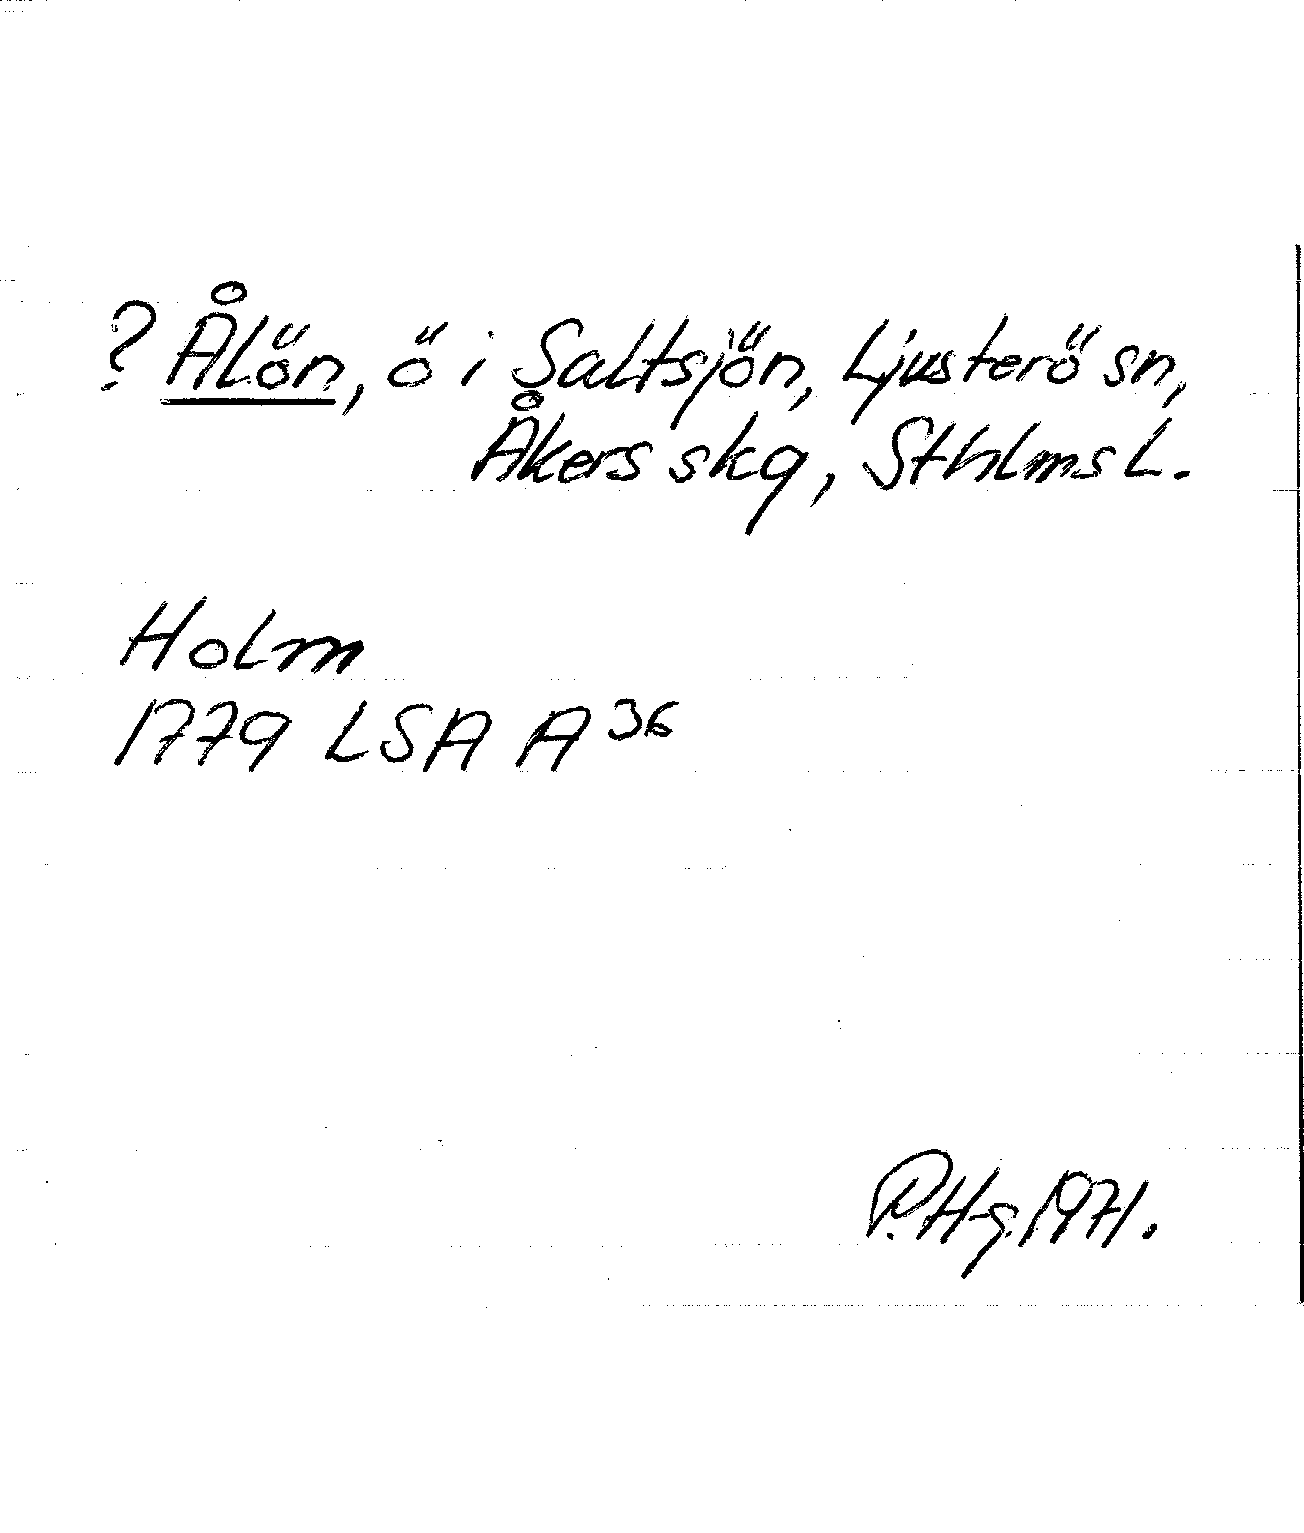 ? Ålön, ö i Saltsjön, Ljusterö sn,
Åkers skg, Sthlms l.
Holm
1779 LSA A 36
P.Hg.1971.